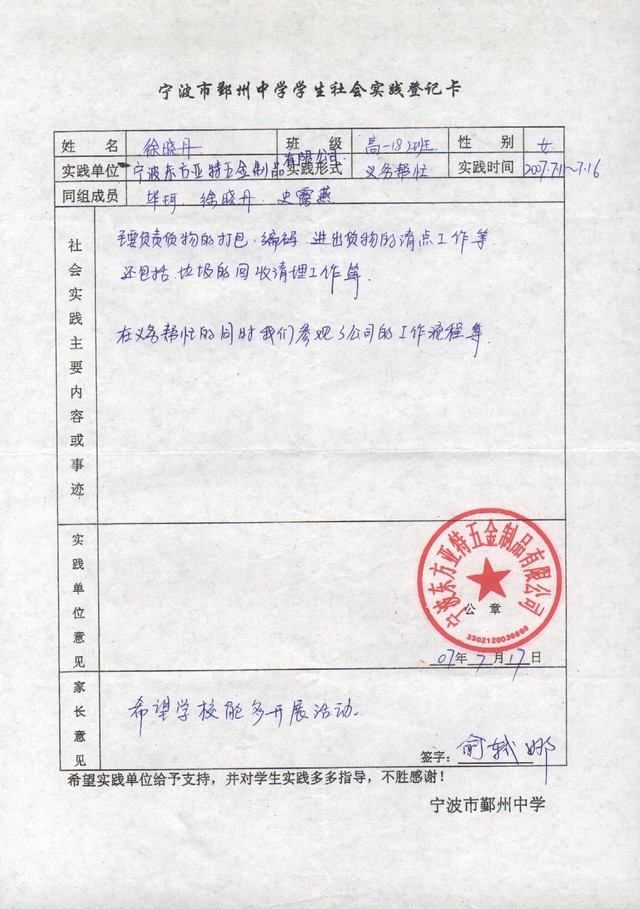 宁波市鄞州中学学生社会实践登记卡
姓 名 徐晓丹 班 级 高一18班 性 别 女
实践单位 宁波东方亚特五金制品有限公司 实践形式 义务帮忙 实践时间 2007.7.11~7.16
同组成员 毕珂 徐晓丹 史露燕
社会实践主要内容或事迹
主要负责货物的打包、编码、进出货物的清点工作等.
还包括垃圾的回收清理工作等.
在义务帮忙的同时我们参观了公司的工作流程等.
实践单位意见
宁波东方亚特五金制品有限公司
公 章
3302120036666
07年7月17日
家长意见
希望学校能多开展活动.
签字:俞 娜
希望实践单位给予支持，并对学生实践多多指导，不胜感谢！
宁波市鄞州中学